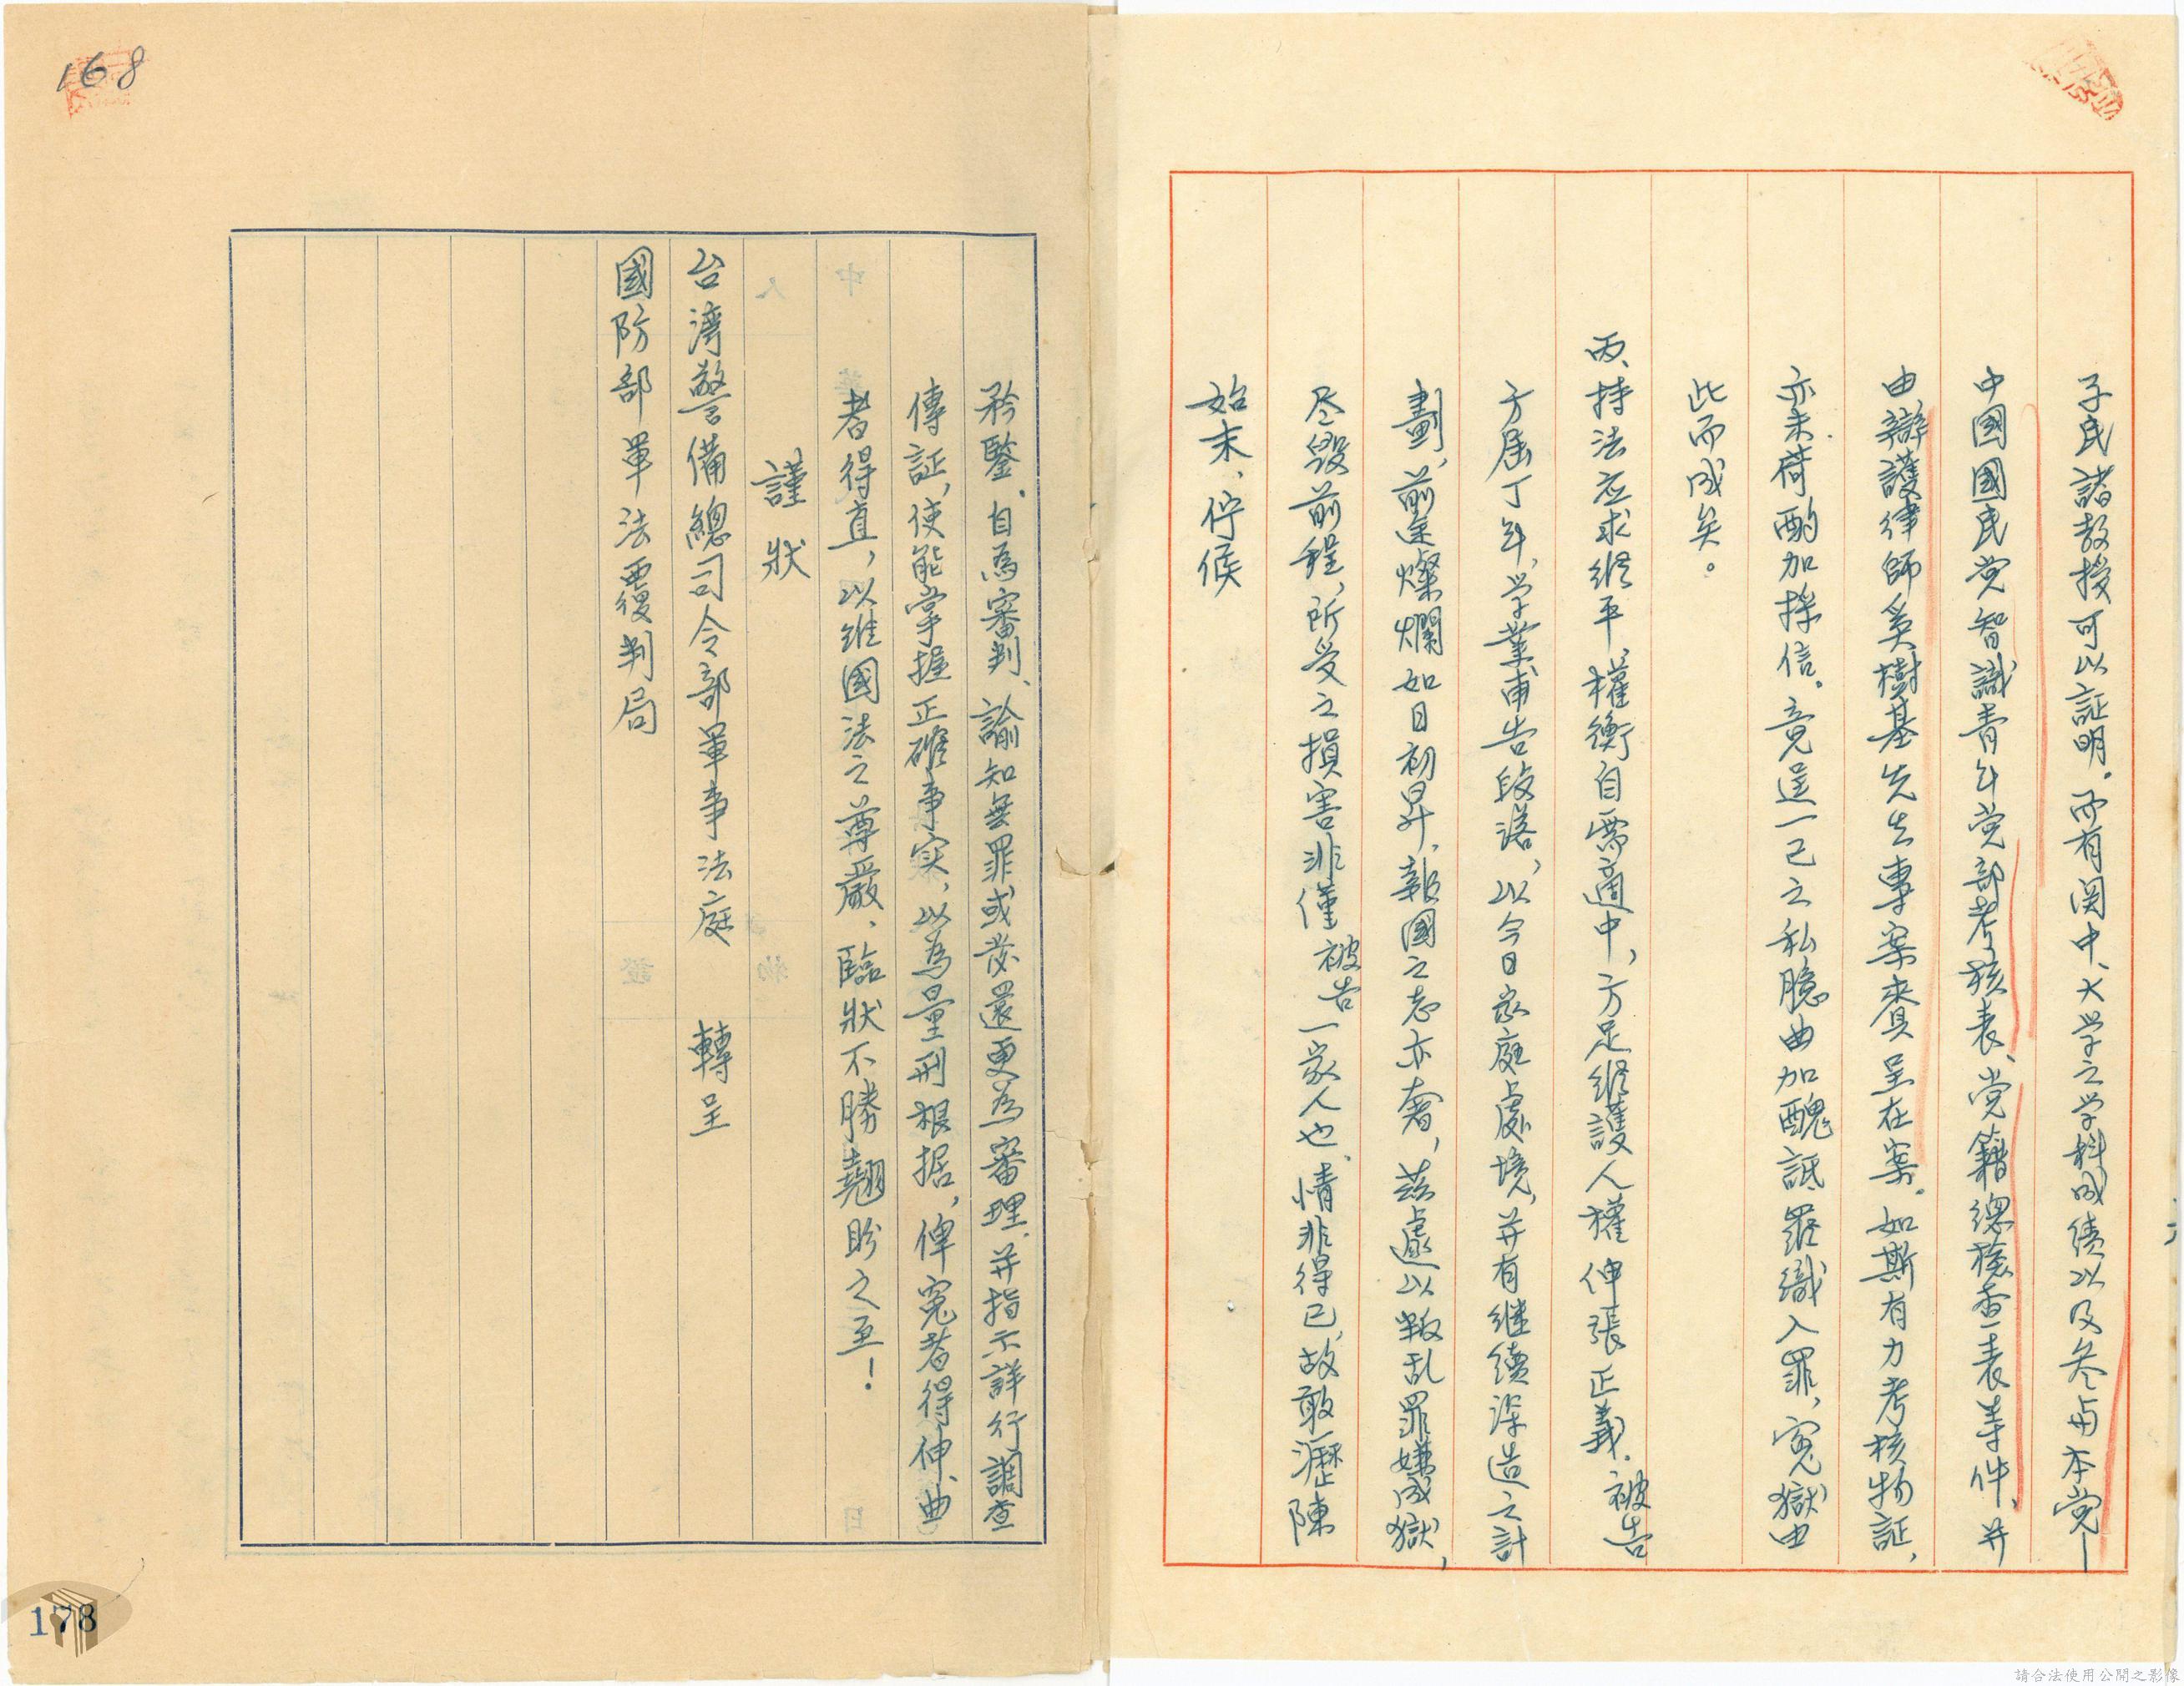 子民諸敎授可以証明。而有関中、大学之学科成績以及参与本党—
中國國民党智識青年党部考核表、党籍總檢查表等件、并
由辯護律師奚樹基先生專案賫呈在案。如斯有力考核物証，
亦未荷酌加採信。竟逞一己之私臆曲加醜詆羅織入罪，寃獄由
此而成矣。
丙、持法应求維平、權衡自需適中，方足維護人權伸張正義。被告
方屆丁年，学業甫告段落，以今日家庭處境，并有继續深造之計
劃，前途燦爛如日初昇，報國之志亦奢，茲遽以叛乱罪嫌成獄，
尽毀前程，所受之損害非僅被告一家人也、情非得已，故敢瀝陳
始末，佇候
矜鑒、自為審判、諭知無罪或發還更為審理、并指示詳行調查
傳証，使能掌握正確事实，以為量刑根据，俾寃者得伸、曲
者得直，以維國法之尊嚴、臨狀不勝翹盼之至！
謹狀
台灣警備總司令部軍事法庭 轉呈
國防部軍法覆判局
168
178
請合法使用公開之影像